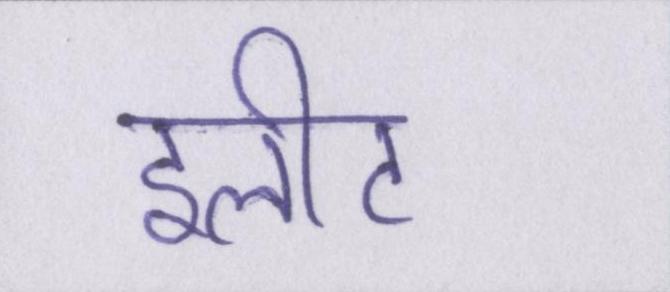 इलीट